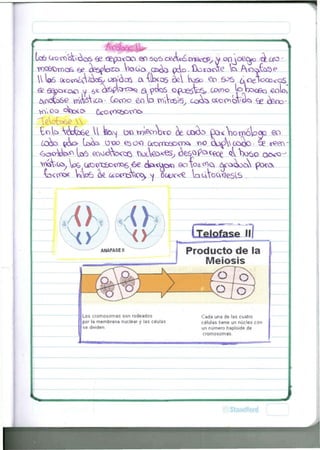 Anafase II
Las cromátidas se separan en sus centrómeros, y un juego de cro-
mosomas se desplaza hacia cada polo. Durante la Anafase
II las cromátidas, unidas a fibras del huso en sus cinetocoros,
se separan y se desplazan a polos opuestos, como lo hacen en la
anafase mitótica. Como en la mitosis, cada cromátida se deno-
mina ahora cromosoma
Telofase II
En la telofase II hay un miembro de cada par homólogo en
cada polo. Cada uno es un cromosoma no duplicado. Se reen-
samblan las envolturas nucleares, desaparece el huso acro-
mático, los cromosomas se alargan en forma gradual para
formar hilos de cromatina, y ocurre la citocinesis
ANAFASE II
Telofase II
Producto de la
Meiosis
Los cromosomas son rodeados
por la membrana nuclear y las células
se dividen.
Cada una de las cuatro
células tiene un núcleo con
un número haploide de
cromosomas.
Standford